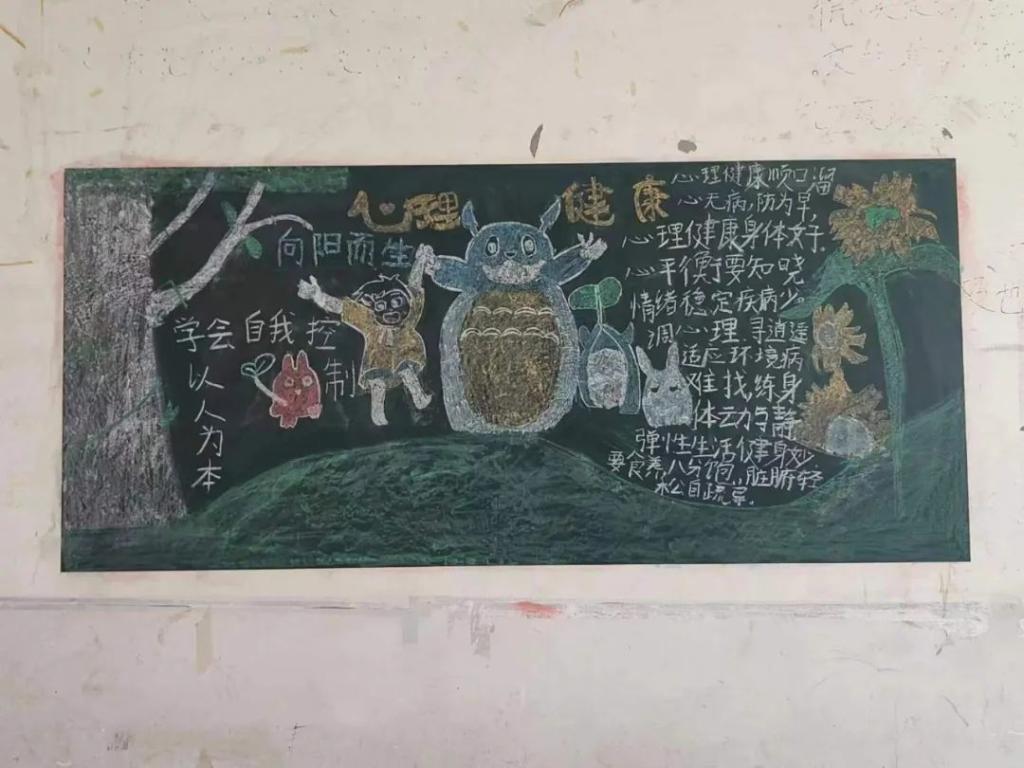 心理健康
向阳而生
学会自我控
制
以人为本
心理健康顺口溜
心无病,防为早,
心理健康身体好.
心平衡要知晓
情绪稳定疾病少。
调心理寻逍遥
适应环境病
难找,练身
体动与静
弹性生活健身妙
要食素八分饱,脏腑轻
松自疏导。